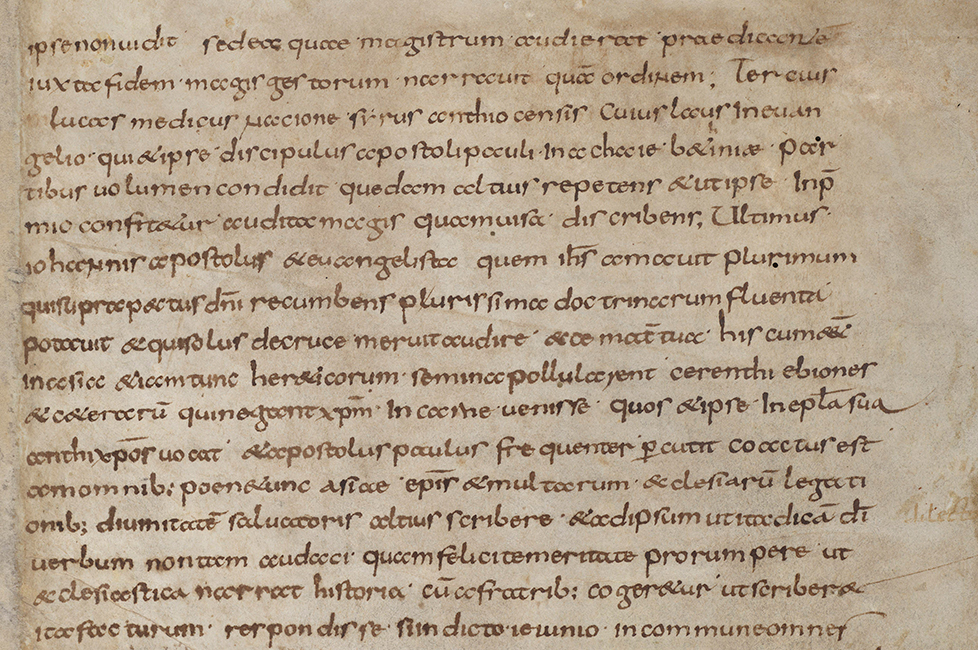 ipse non uidit sed ea quae magistrum audierat praedicantē
iuxta fidem magis gestorum narrauit quā ordinem; Tercius
lucas medicus nacione sirus anthiocensis Cuius laus In euan
gelio qui &ipse discipulus apostoli pauli In achaie b&iniae par
tibus uolumen condidit quedam altius repetens &ut ipse Inp̄
mio confit&ur audita magis quam uisa discribens; Ultimus
iohannis apostolus &euangelista quem ih̄s amauit plurimum
qui supra pectus dn̄i recumbens plurissima doctrinarum fluenta
potauit &qui solus de cruce meruit audire his cum
in asia &iam tunc her&icorum semina pollularent cerenthi ebiones
&c&erarū qui negant xp̄m In carne uenisse quos &ipse In epl̄a sua
anthixpōs uocat &apostolus paulus frequenter ꝑcutit coactus est
am omnib; poene tunc asiae epīs &multarum &clesiarū legati
onib; diuinitatē saluatoris altius scribere &ad ipsum ut ita dicā dī
uerbum non tam audaci quam felici temeritate prorumpere ut
&clesiastica narrat historia cū a fratrib; coger&ur ut scriber&
ita facturum respondisse si indicto ieiunio in commune omnes